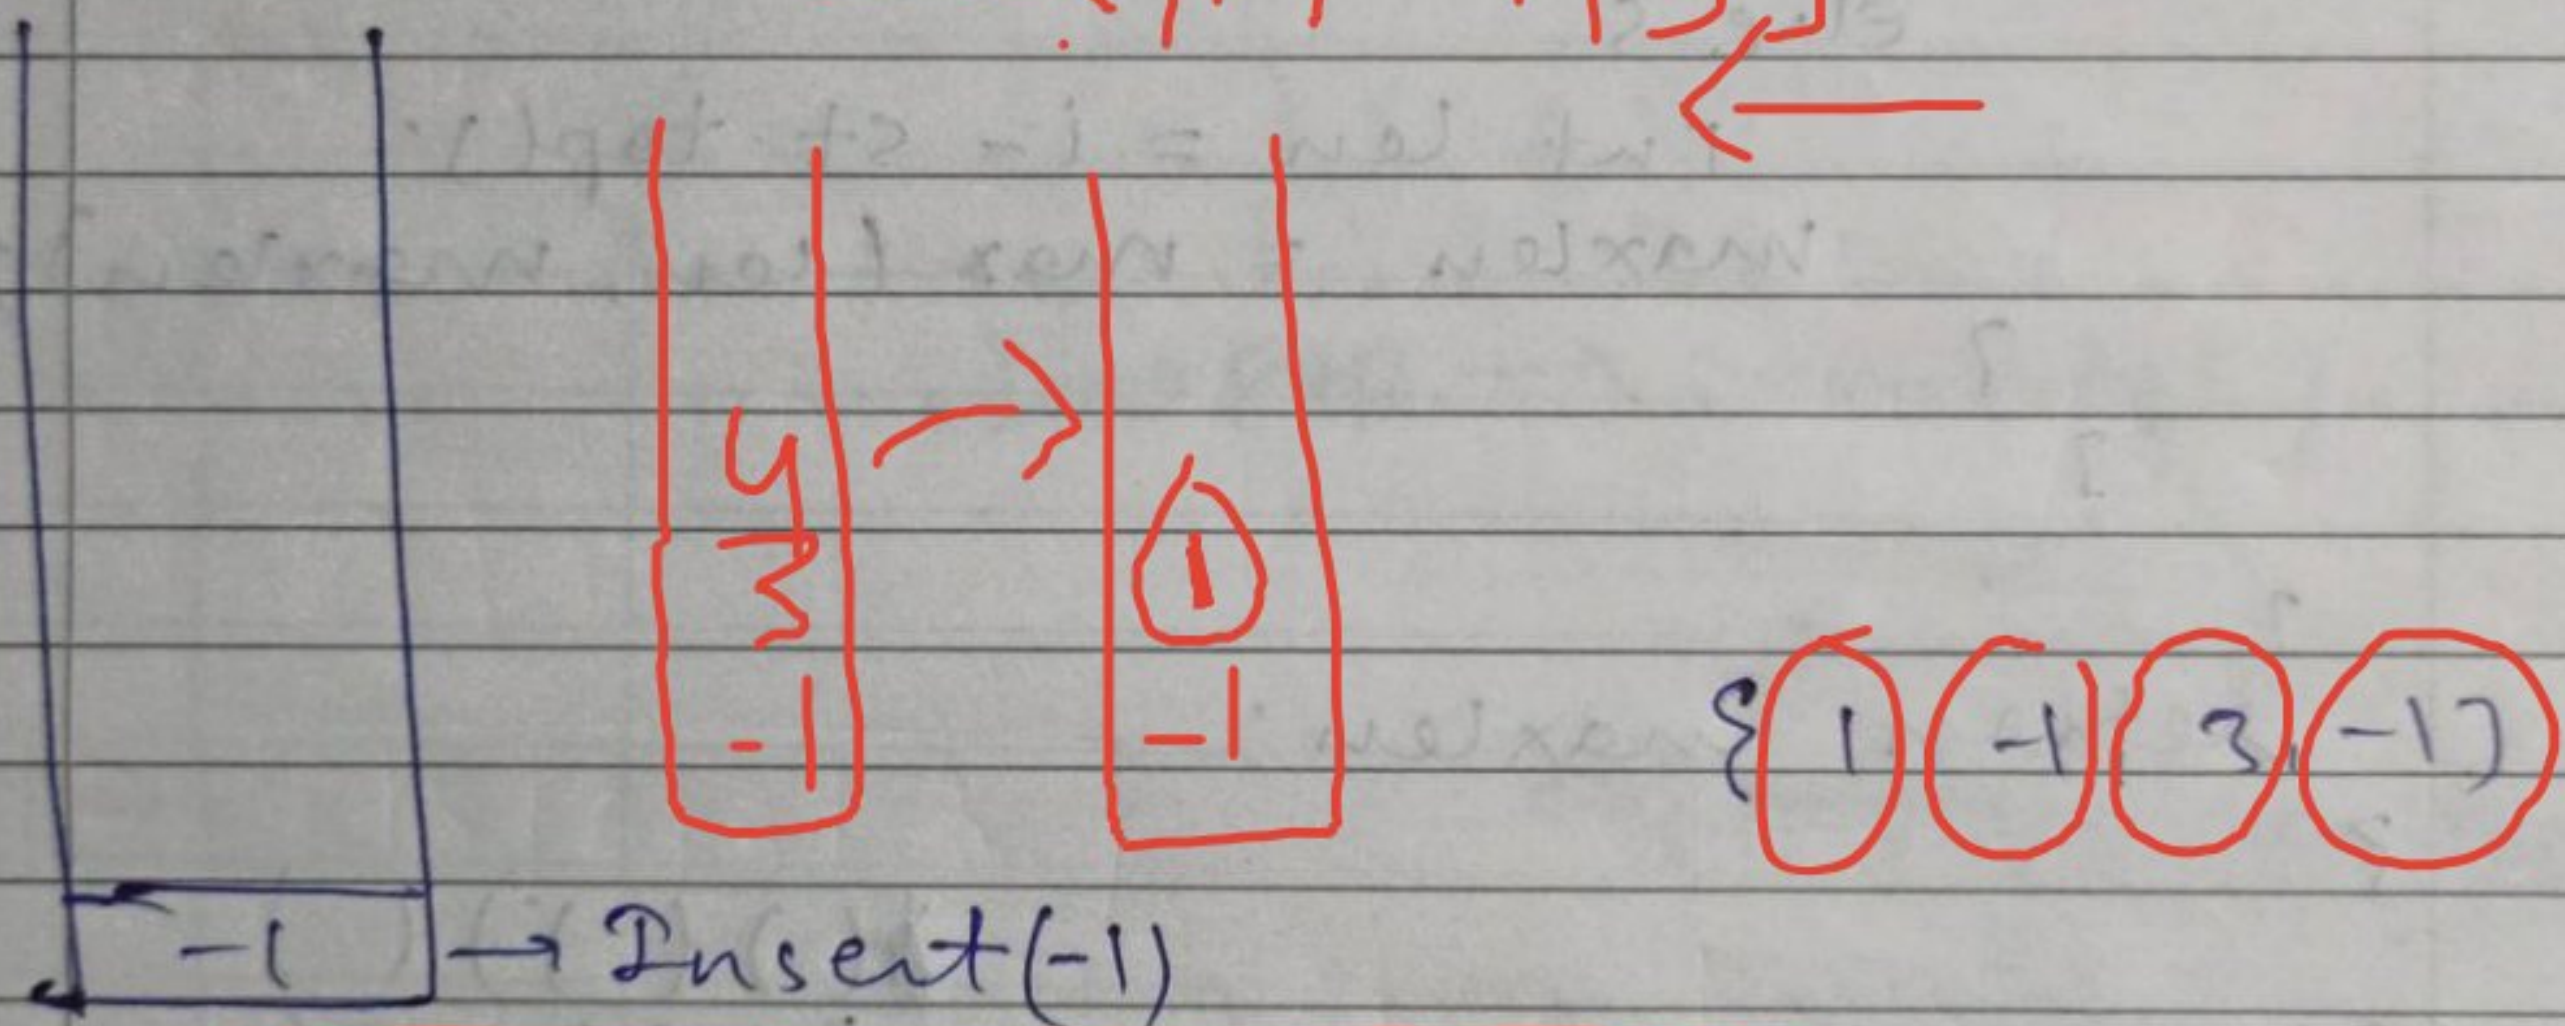 4
3
-1
1
-1
{ 1 -1 3, -1 }
-1 → Insert(-1)